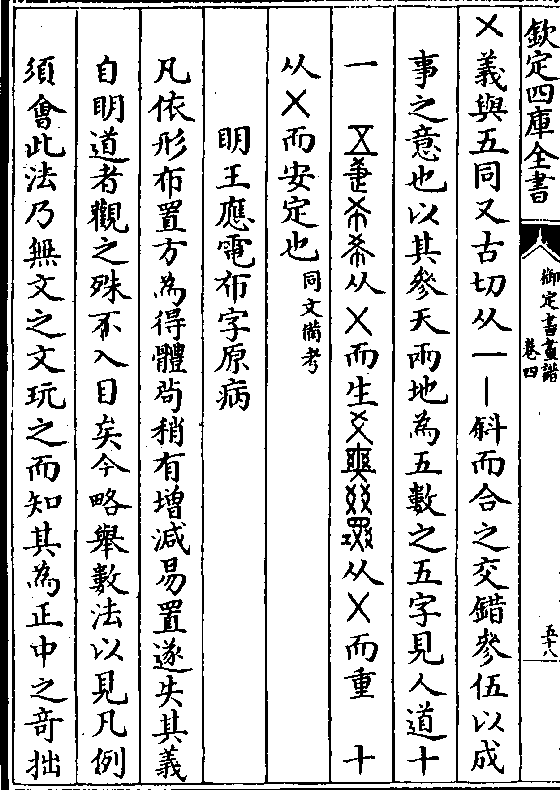 欽定四庫全書
御定書畫譜
卷四
五十八
㐅義與五同又古切从一丨斜而合之交錯參伍以成
事之意也以其參天兩地為五數之五字見人道十
一 从㐅而生爻爽㸚 从㐅而重 十
从㐅而安定也 同文備考
明王應電布字原病
凡依形布置方為得體茍稍有增減易置遂失其義
自明道者觀之殊不入目矣今略舉數法以見凡例
須會此法乃無文之文玩之而知其為正中之竒拙